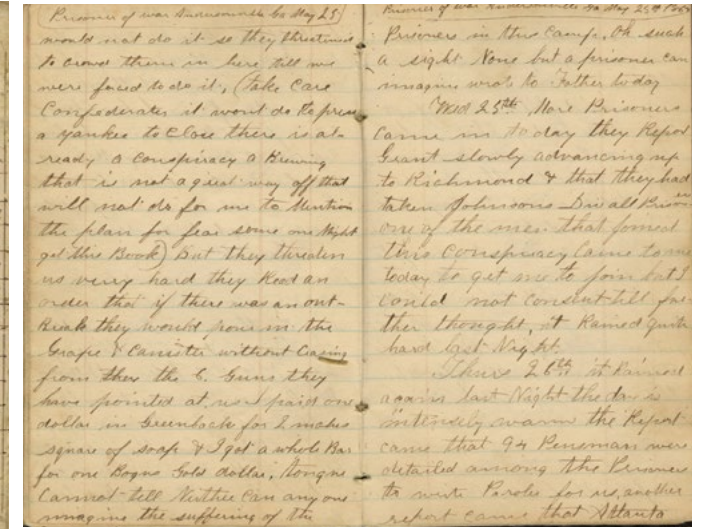 Prisoner of war Andersonville Ga May 25
would not do it so they threatened
to crowd them in here till we
were forced to do it, (take care
Confederates it wont do to press
a yankee to close there is al-
ready a conspiracy a Brewing
that is not a great way off that
will not do for me to Mention
the plan for fear some one Might
get this Book) but they threaten
us very hard they Read an
order that if there was an out-
Break they would pour in the
Grape & Canister without Ceasing
from the 6 Guns they
have pointed at us. I paid one
dollar in Greenback for 2 
square of soap & I got a whole Bar
for one Bogus Gold dollar, Tongue
Cannot tell Neither Can any one
immagine the suffering of the
Prisoner of war Andersonville Ga May 25th
Prisoners in this Camp, Oh such
a sight None but a prisoner can
immagine wrote to Father today
Wed 25th, More Prisoners
came in to day they Report
Grant slowly advancing up
to Richmond & that they had
taken Johnsons Div all Prisoners
one of the men that formed
this Conspiracy Came to me
today to get me to join but I
could not consent till far-
ther thought, it Rained quite
hard last Night.
Thurs 26th it Rained
again last Night the day is
intensely warm the Report
came that 94 Peneman were
detailed among the Prisoners
to write Paroles for us, another
report came that Atlanta